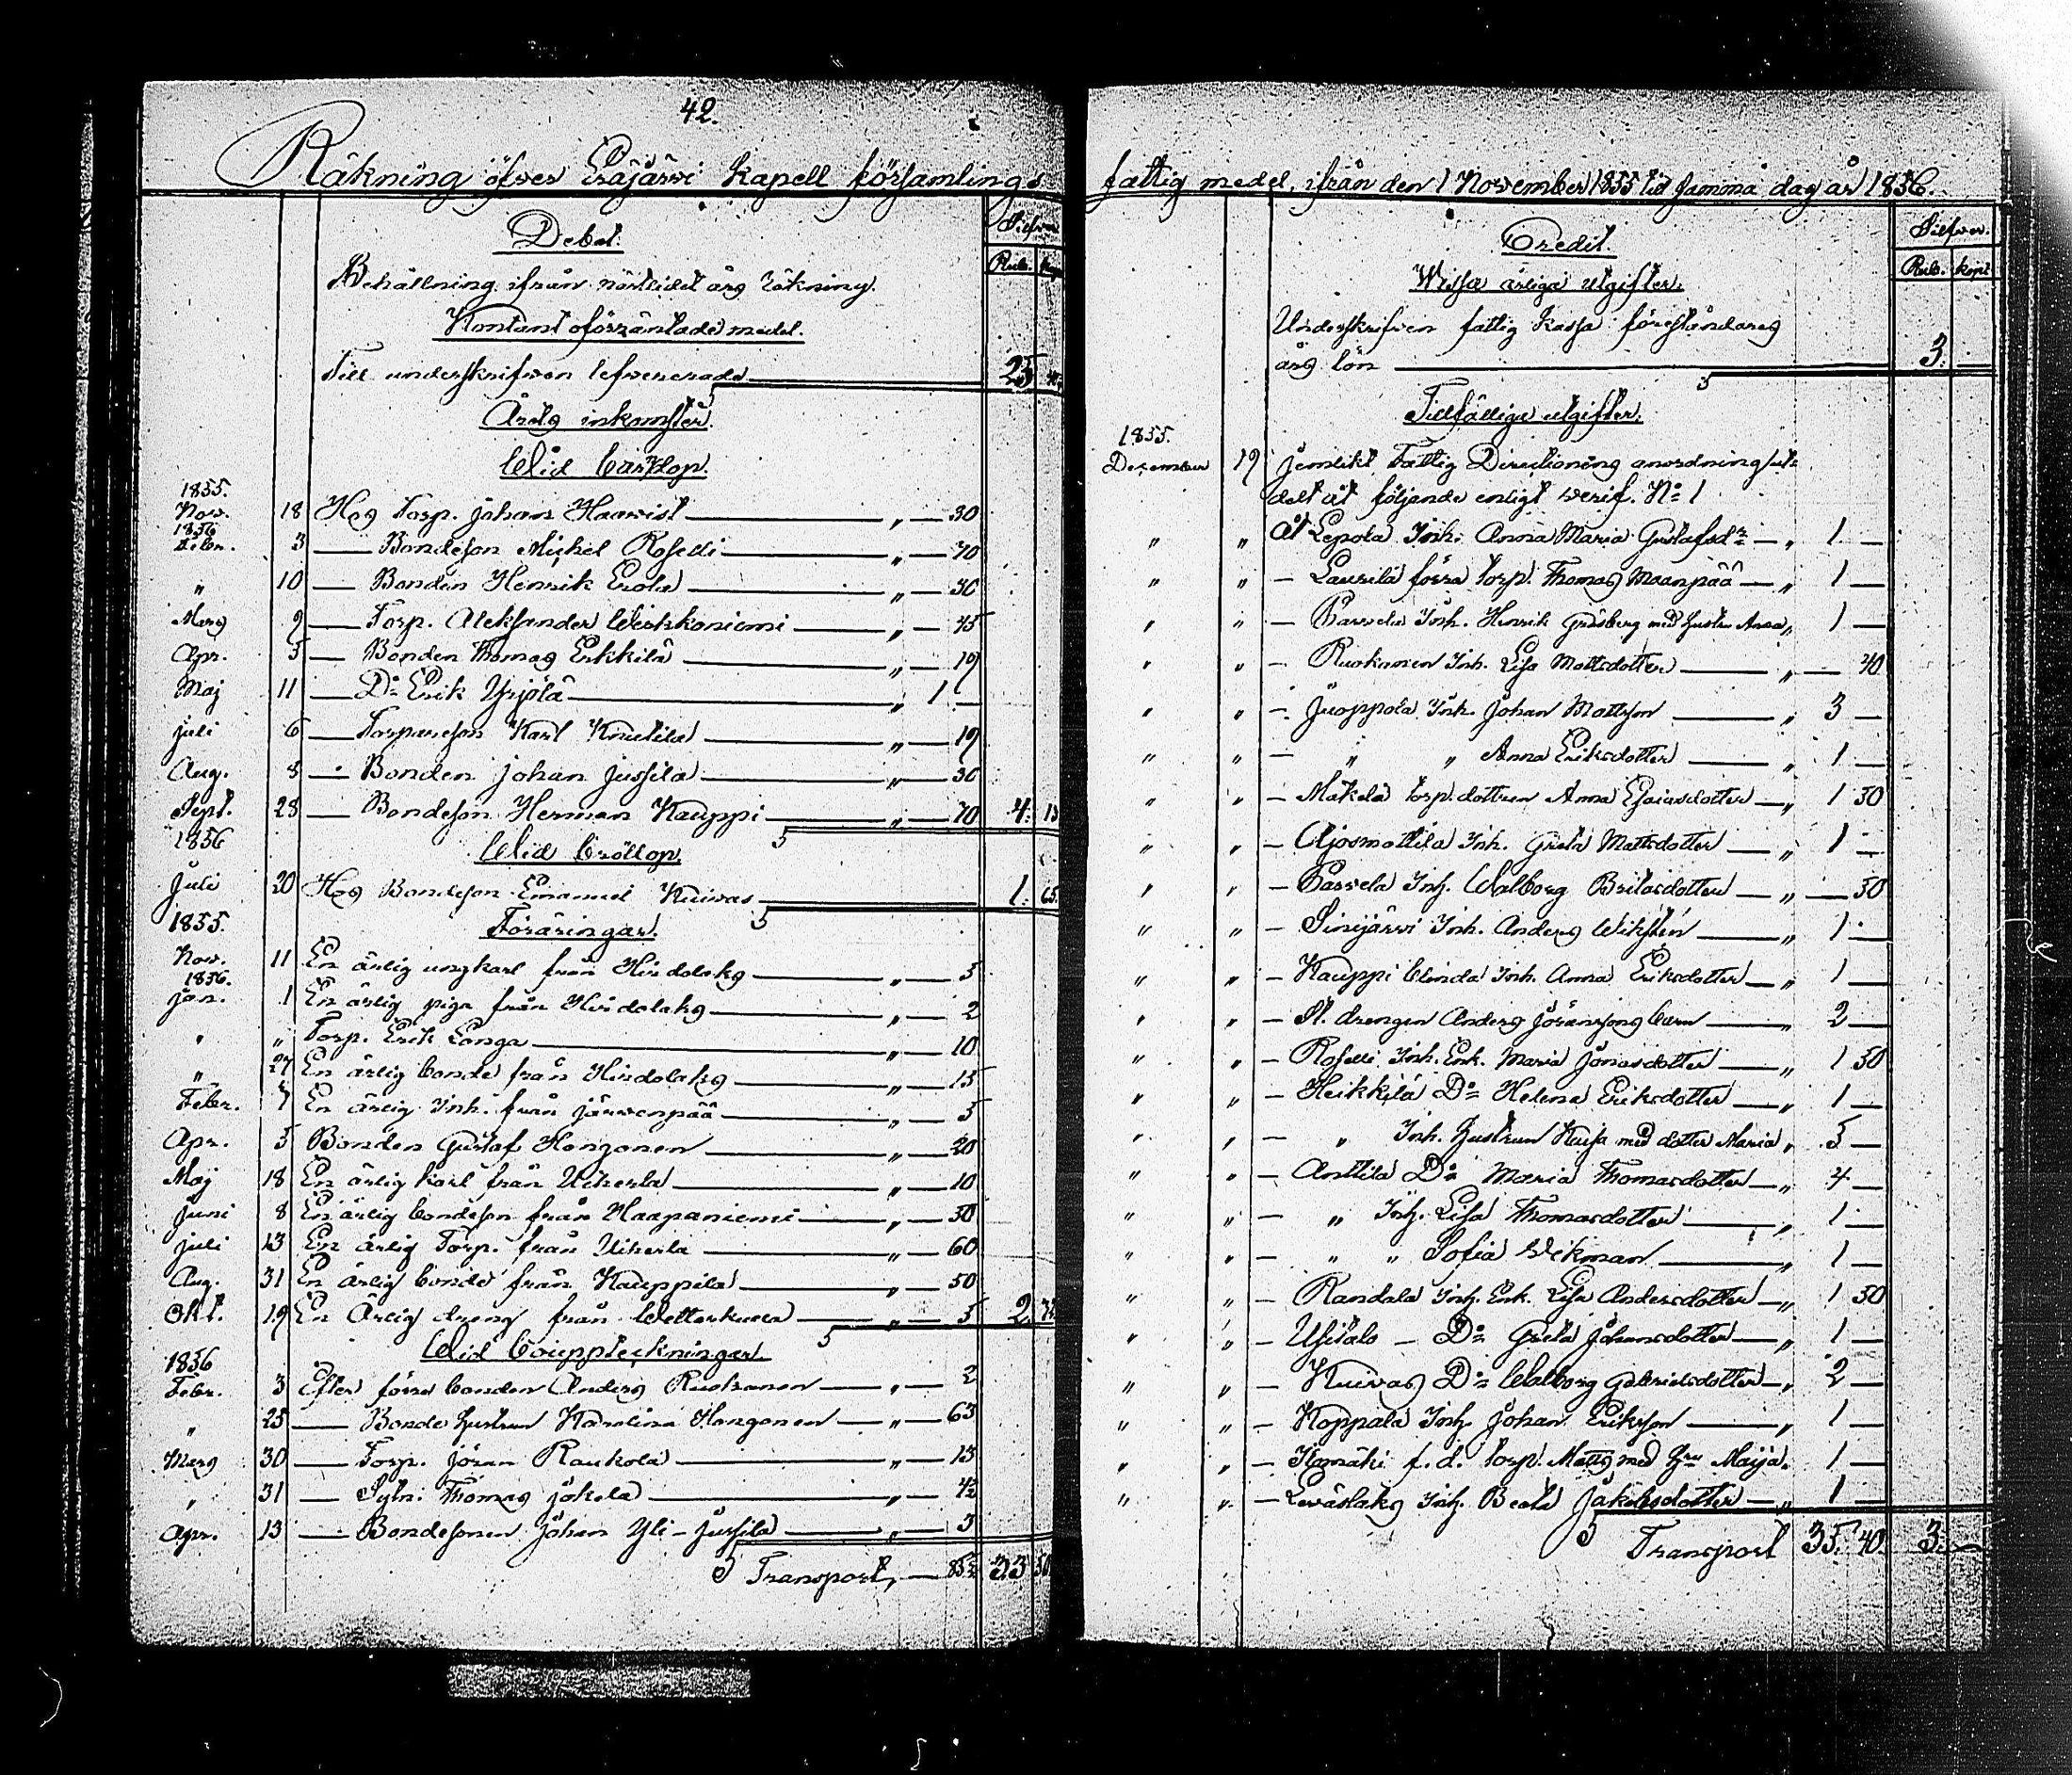 42.
Räkning öfver Eräjärvi kapell församlings
Debet.
Silfver
Rub. kop.
Behållning ifrån nästlidet års räkning.
Kontant oförräntade medel.
Till underskrifven lefvererade 25
Årets inkomster.
Wid barndop.
1855.
Nov. 18 Hos Torp. Johan Haavist " 30
1856
Febr. 3 — Bondeson Michel Roselli " 70
" 10 — Bonden Henrik Erola " 30
Mars 9 — Torp. Aleksander Weihkoniemi " 45
Apr. 5 — Bonden Thomas Erkkilä " 19
Maj 11 — D:o Erik Yrjölä " 1 —
Juli 6 — Torpareson Karl Knuutila " 19
Aug. 8 — Bonden Johan Jussila " 30
Sept. 28 — Bondeson Herman Kauppi " 70 4. 13
1856
Wid bröllop.
Juli 20 Hos Bondeson Emanuel Kuivas 1. 65.
1855.
Föräringar.
Nov. 11 En ärlig ungkarl från Hirdolaks " 5
1856.
Jan. 1 En ärlig piga från Hirdolaks " 2
" " Torp. Erik Langa " 10
" 27 En ärlig bonde från Hirdolaks " 15
Febr. 7 En ärlig Inh. från Järvenpää " 5
Apr. 5 Bonden Gustaf Hongonen " 20
Maj 18 En ärlig karl från Uiherla " 10
Juni 8 En ärlig bondeson från Haapaniemi " 50
Juli 13 En ärlig Torp. från Uiherla " 60
Aug. 31 En ärlig bonde från Kauppila " 50
Okt. 19 En Ärlig dreng från " 5 2. 32
Wid bouppteckningar.
1856
Febr. 3 Efter förra bonden Anders Ruokonen " 2
" 25 — Bonde hustrun Karolina Hongonen " 63
Mars 30 — Torp. Jöran Raukola " 13
" 31 — Sytn: Thomas Jokela " 4½
Apr. 13 — Bondesonen Johan Yli-Jussila " 3
Transport, — 85½ 33 50
fattig medel, ifrån den 1 November 1855 till samma dag år 1856.
Credit.
Silfver.
Rub. kop.
Wissa årliga utgifter.
Underskrifven fattig kassa föreståndares
års lön 3.
Tillfälliga utgifter.
1855.
December 19 Jemlikt Fattig Directionens anordning ut-
delt åt följande enligt verif. N:o 1
" " Åt Lepola Inh. Anna Maria Gustafsd:r " 1 —
" " — Laurila förra torp. Thomas Maanpää " 1 —
" " — Parvela Inh. Henrik Gräsberg med hustru Anna " 1 —
" " — Ruokonen Inh. Lisa Mattsdotter " — 40
" " — Juoppola Inh. Johan Mattson " 3 —
" " — " " Anna Eriksdotter " 1 —
" " — Mäkelä torp. dottren Anna Esaiasdotter " 1 50
" " — Ajosmattila Inh. Greta Mattsdotter " 1 —
" " — Parvela Inh. Walborg Britasdotter " — 50
" " — Sinijärvi Inh. Anders Wiksten " 1 —
" " — Kauppi blinda Inh. Anna Eriksdotter " 1 —
" " — Sl. drengen Anders Jöranssons barn " 2 —
" " — Roselli Inh. Enk. Maria Jonasdotter " 1 50
" " — Heikkilä D:o Helena Eriksdotter " 1 —
" " — " Inh. hustrun Kaisa med dotter Maria " 5 —
" " — Anttila D:o Maria Thomasdotter " 4 —
" " — " Inh. Lisa Thomasdotter " 1 —
" " — " " Sofia Wikman " 1 —
" " — Randala Inh. Enk. Lisa Andersdotter " 1 50
" " — Uusitalo — D:o Greta Johansdotter " 1 —
" " — Kuivas D:o Walborg Gabrielsdotter " 2 —
" " — Koppala Inh. Johan Eriksson " 1 —
" " — f. d. torp. Matts med H:ru Maija " 1 —
" " — Leväslaks Inh. Beata Jakobsdotter " 1 —
Transport 35. 40. 3. —